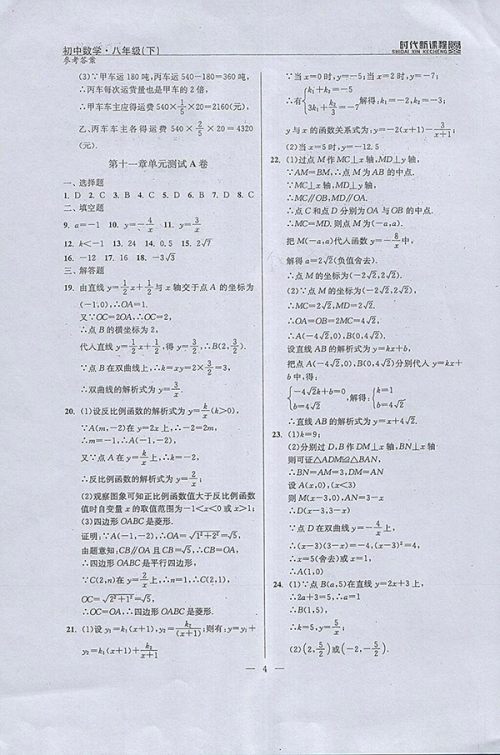 初中数学·八年级(下)
时代新课程
SHIDAI XIN KECHENG
参考答案
(3)∵甲车运180吨,丙车运540-180=360吨,
∴丙车每次运货量也是甲车的2倍,
∴甲车车主应得运费540×1/5×20=2160(元),
乙、丙车车主各得运费540×2/5×20=4320
(元).
第十一章单元测试A卷
一、选择题
1. D 2. C 3. B 4. C 5. D 6. B 7. D 8. C
二、填空题
9. a=-1 10. y=-4/x 11. y=3/x
12. k<-1 13. 24 14. 0.5 15. 2√7
16. -12 17. 16 18. -3√3
三、解答题
19. 由直线y=1/2x+1/2与x轴交于点A的坐标为
(-1,0),∴OA=1.
又∵OC=2OA,∴OC=2,
∴点B的横坐标为2,
代入直线y=1/2x+1/2,得y=3/2,∴B(2,3/2).
∵点B在双曲线上,∴k=xy=2×3/2=3,
∴双曲线的解析式为y=3/x.
20. (1)设反比例函数的解析式为y=k/x(k>0),
∵A(m,-2)在y=2x上,∴-2=2m,
∴m=-1,∴A(-1,-2),
又∵点A在y=k/x上,∴k=2,
∴反比例函数的解析式为y=2/x;
(2)观察图象可知正比例函数值大于反比例函数
值时自变量x的取值范围为-1<x<0或x>1;
(3)四边形OABC是菱形.
证明:∵A(-1,-2),∴OA=√(1²+2²)=√5,
由题意知:CB∥OA且CB=√5,∴CB=OA,
∴四边形OABC是平行四边形,
∵C(2,n)在y=2/x上,∴n=1,∴C(2,1),
OC=√(2²+1²)=√5,
∴OC=OA,∴四边形OABC是菱形.
21. (1)设y₁=k₁(x+1),y₂=k₂/(x+1);则有:y=y₁+
y₂=k₁(x+1)+k₂/(x+1)
∵当x=0时,y=-5;当x=2时,y=-7.
∴有{k₁+k₂=-5 3k₁+k₂/3=-7 解得:k₁=-2,k₂=-3;
y与x的函数关系式为:y=-2(x+1)-3/(x+1);
(2)当x=5时,y=-12.5
22. (1)过点M作MC⊥x轴,MD⊥y轴,
∵AM=BM,∴点M为AB的中点.
∵MC⊥x轴,MD⊥y轴,
∴MC∥OB,MD∥OA.
∴点C和点D分别为OA与OB的中点.
∴MC=MD.则点M为(-a,a).
把M(-a,a)代入函数y=-8/x中,
解得a=2√2(负值舍去).
∴点M的坐标为(-2√2,2√2).
(2)∵点M的坐标为(-2√2,2√2),
∴MC=2√2,MD=2√2.
∴OA=OB=2MC=4√2,
∴A(-4√2,0),B(0,4√2).
设直线AB的解析式为y=kx+b,
把点A(-4√2,0),B(0,4√2)分别代入y=kx+
b中,得:
{-4√2k+b=0 b=4√2 ,解得:{k=1 b=4√2
∴直线AB的解析式为y=x+4√2.
23. (1)k=9;
(2)分别过D,B作DM⊥x轴,BN⊥x轴
则可证△ADM≌△BAN,
∴BN=AM=3,DM=AN
设A(x,0),(x<3)
则M(x-3,0),AN=3-x
∴D(x-3,3-x)
∵点D在双曲线y=-4/x上,
∴(x-3)(3-x)=-4,(x-3)²=4,
∴x=5(舍去)或x=1,
∴A(1,0)
24. (1)∵点B(a,5)在直线y=2x+3上,
∴2a+3=5,∴a=1
∴B(1,5),
∴k=5,y=5/x;
(2)(2,5/2)或(-2,-5/2).
— 4 —